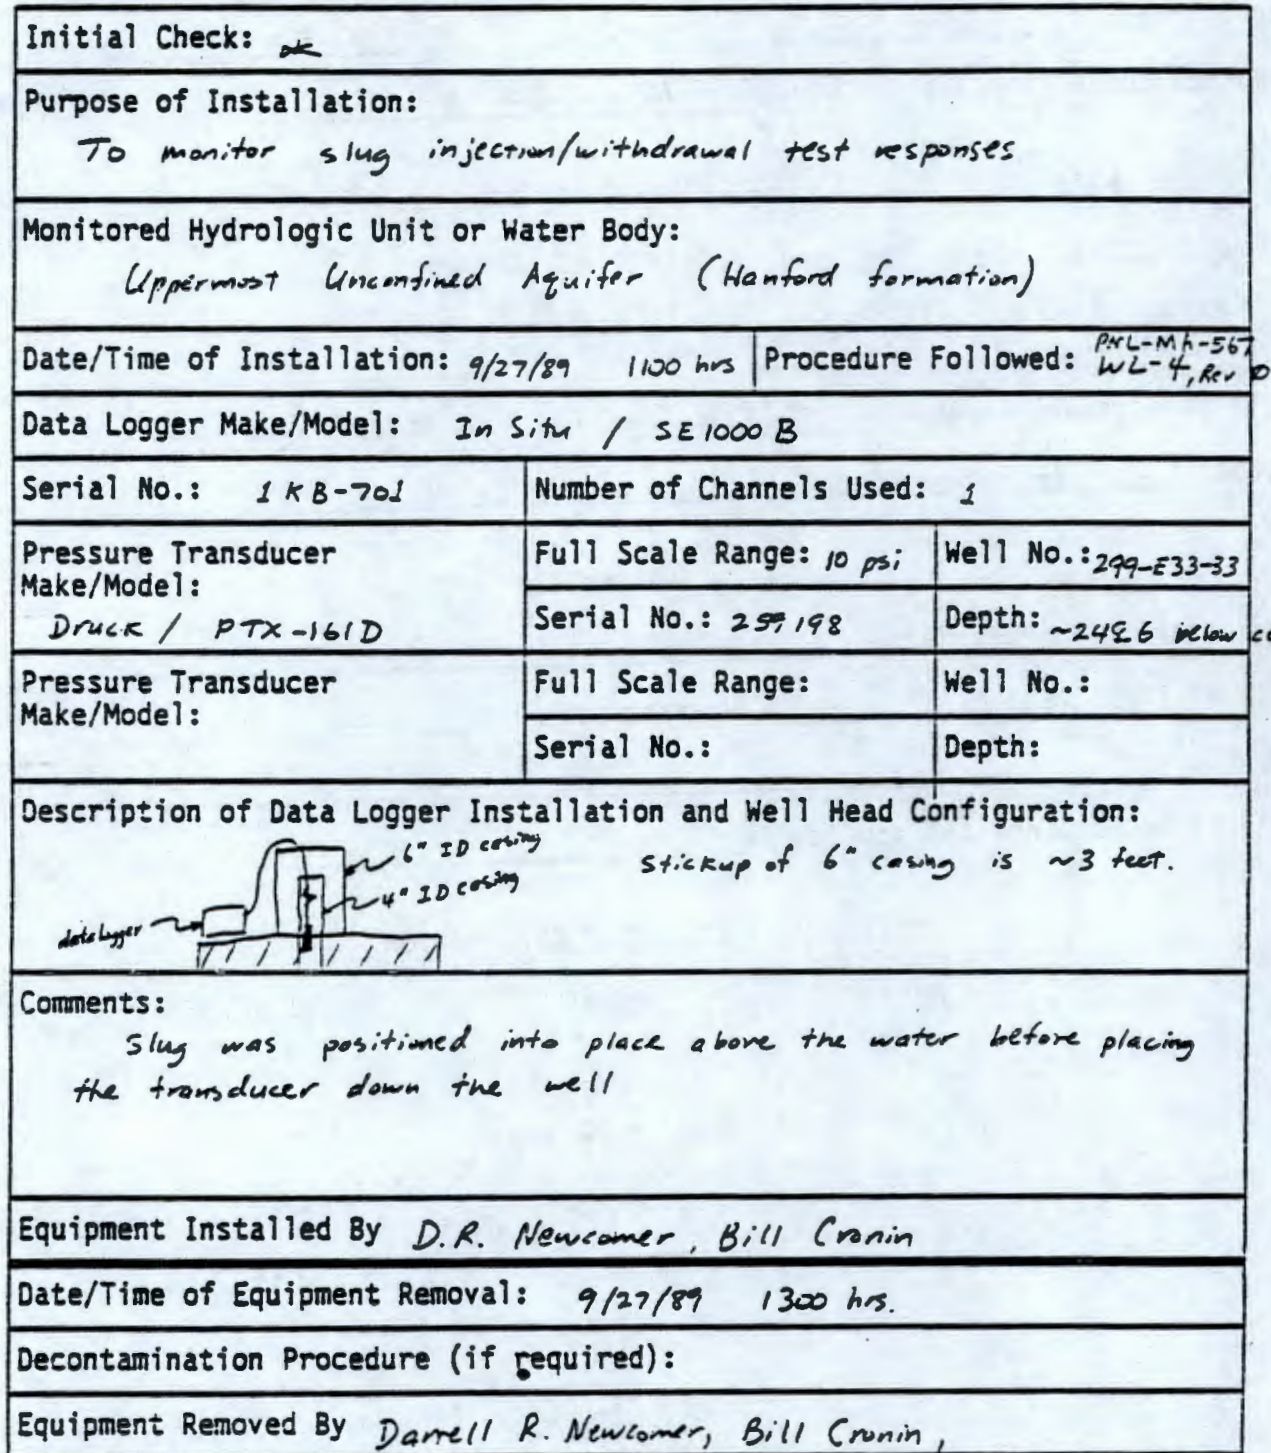 Initial Check: ok
Purpose of Installation:
To monitor slug injection/withdrawal test responses
Monitored Hydrologic Unit or Water Body:
Uppermost Unconfined Aquifer (Hanford formation)
Date/Time of Installation: 9/27/89 1100 hrs
Procedure Followed: PNL-MA-567
WL-4, Rev 0
Data Logger Make/Model: In Situ / SE1000B
Serial No.: 1KB-701
Number of Channels Used: 1
Pressure Transducer
Make/Model:
Druck / PTX-161D
Full Scale Range: 10 psi
Well No.: 299-E33-33
Serial No.:
Depth: below
Pressure Transducer
Make/Model:
Full Scale Range:
Well No.:
Serial No.:
Depth:
Description of Data Logger Installation and Well Head Configuration:
6" ID casing
4" ID casing
data logger
Stickup of 6" casing is ~3 feet.
Comments:
Slug was positioned into place above the water before placing
the transducer down the well
Equipment Installed By D.R. Newcomer, Bill Cronin
Date/Time of Equipment Removal: 9/27/89 1300 hrs.
Decontamination Procedure (if required):
Equipment Removed By Darrell R. Newcomer, Bill Cronin,